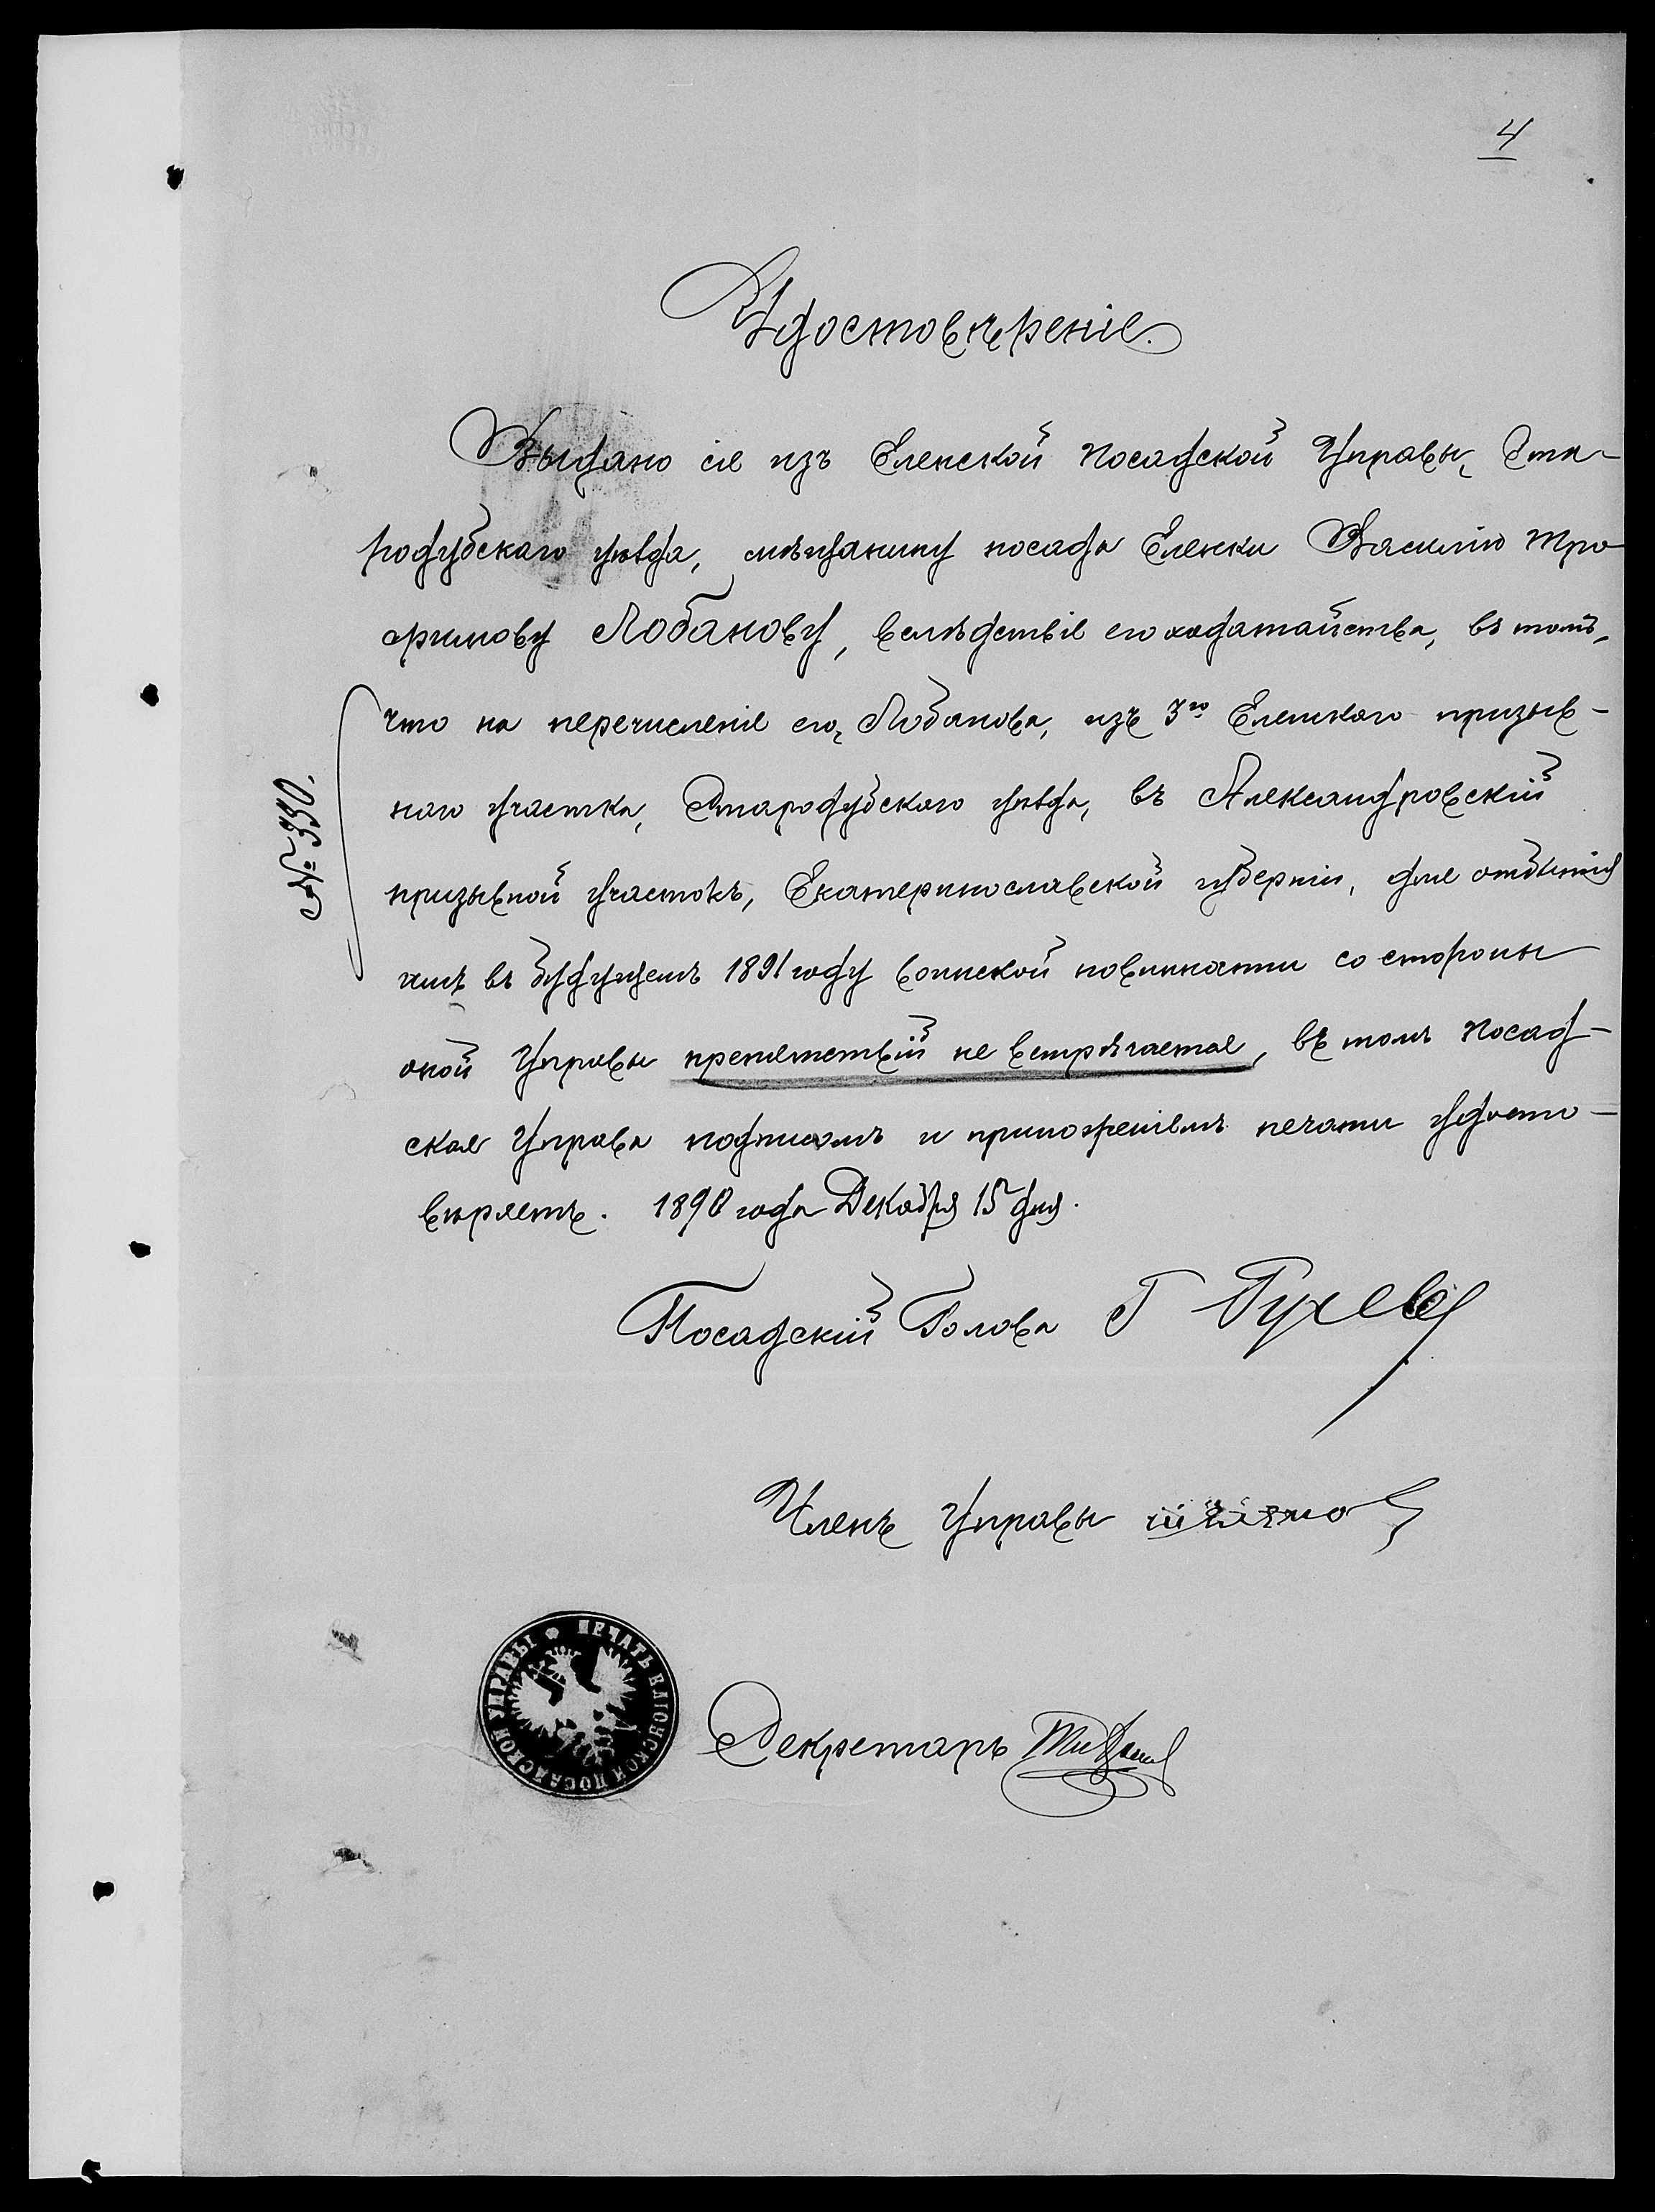 4
Удостовѣреніе.
Выдано сіе изъ Еленской Посадской Управы, Ста-
родубскаго уѣзда, мѣщанину посада Еленки Василію Тро
фимову Лобанову, вслѣдствіе его ходатайства, въ томъ,
что на перечисленіе его, Лобанова, изъ 3го Еленскаго призыв-
наго участка, Стародубскаго уѣзда, въ Александровскій
призывной участокъ, Екатеринославской губерніи, для отбытія
имъ въ будущемъ 1891 году воинской повинности со стороны
оной Управы препятствій не встрѣчается, въ томъ Посад-
ская Управа подписомъ и приложеніемъ печати удосто-
вѣряетъ. 1890 года Декабря 15 дня.
№ 350.
Посадскій Голова Г Гусевъ
Членъ Управы
Секретарь
ПЕЧАТЬ ЕЛІОНСКОЙ ПОСАДСКОЙ УПРАВЫ